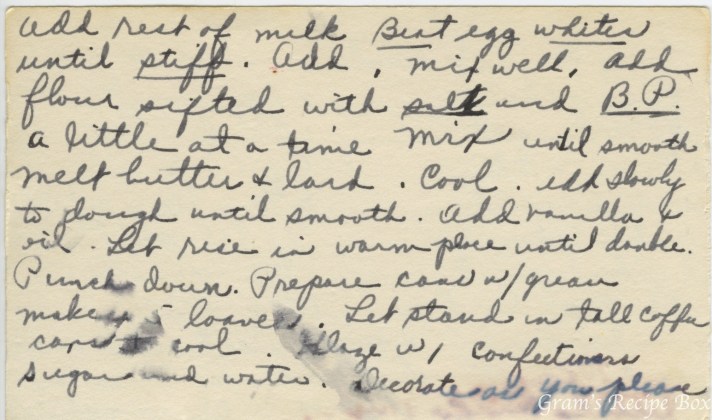 add rest of milk Beat egg whites
until stiff. Add, mix well, add
flour sifted with salt and B.P.
a little at a time Mix until smooth
Melt butter & lard. Cool. add slowly
to dough until smooth. Add vanilla &
oil. Let rise in warm place until double.
Punch down. Prepare cans w/grease
makes 5 loaves. Let stand in tall coffee
cans cool. Glaze w/ confectioners
sugar and water. Decorate as you please
Gram's Recipe Box